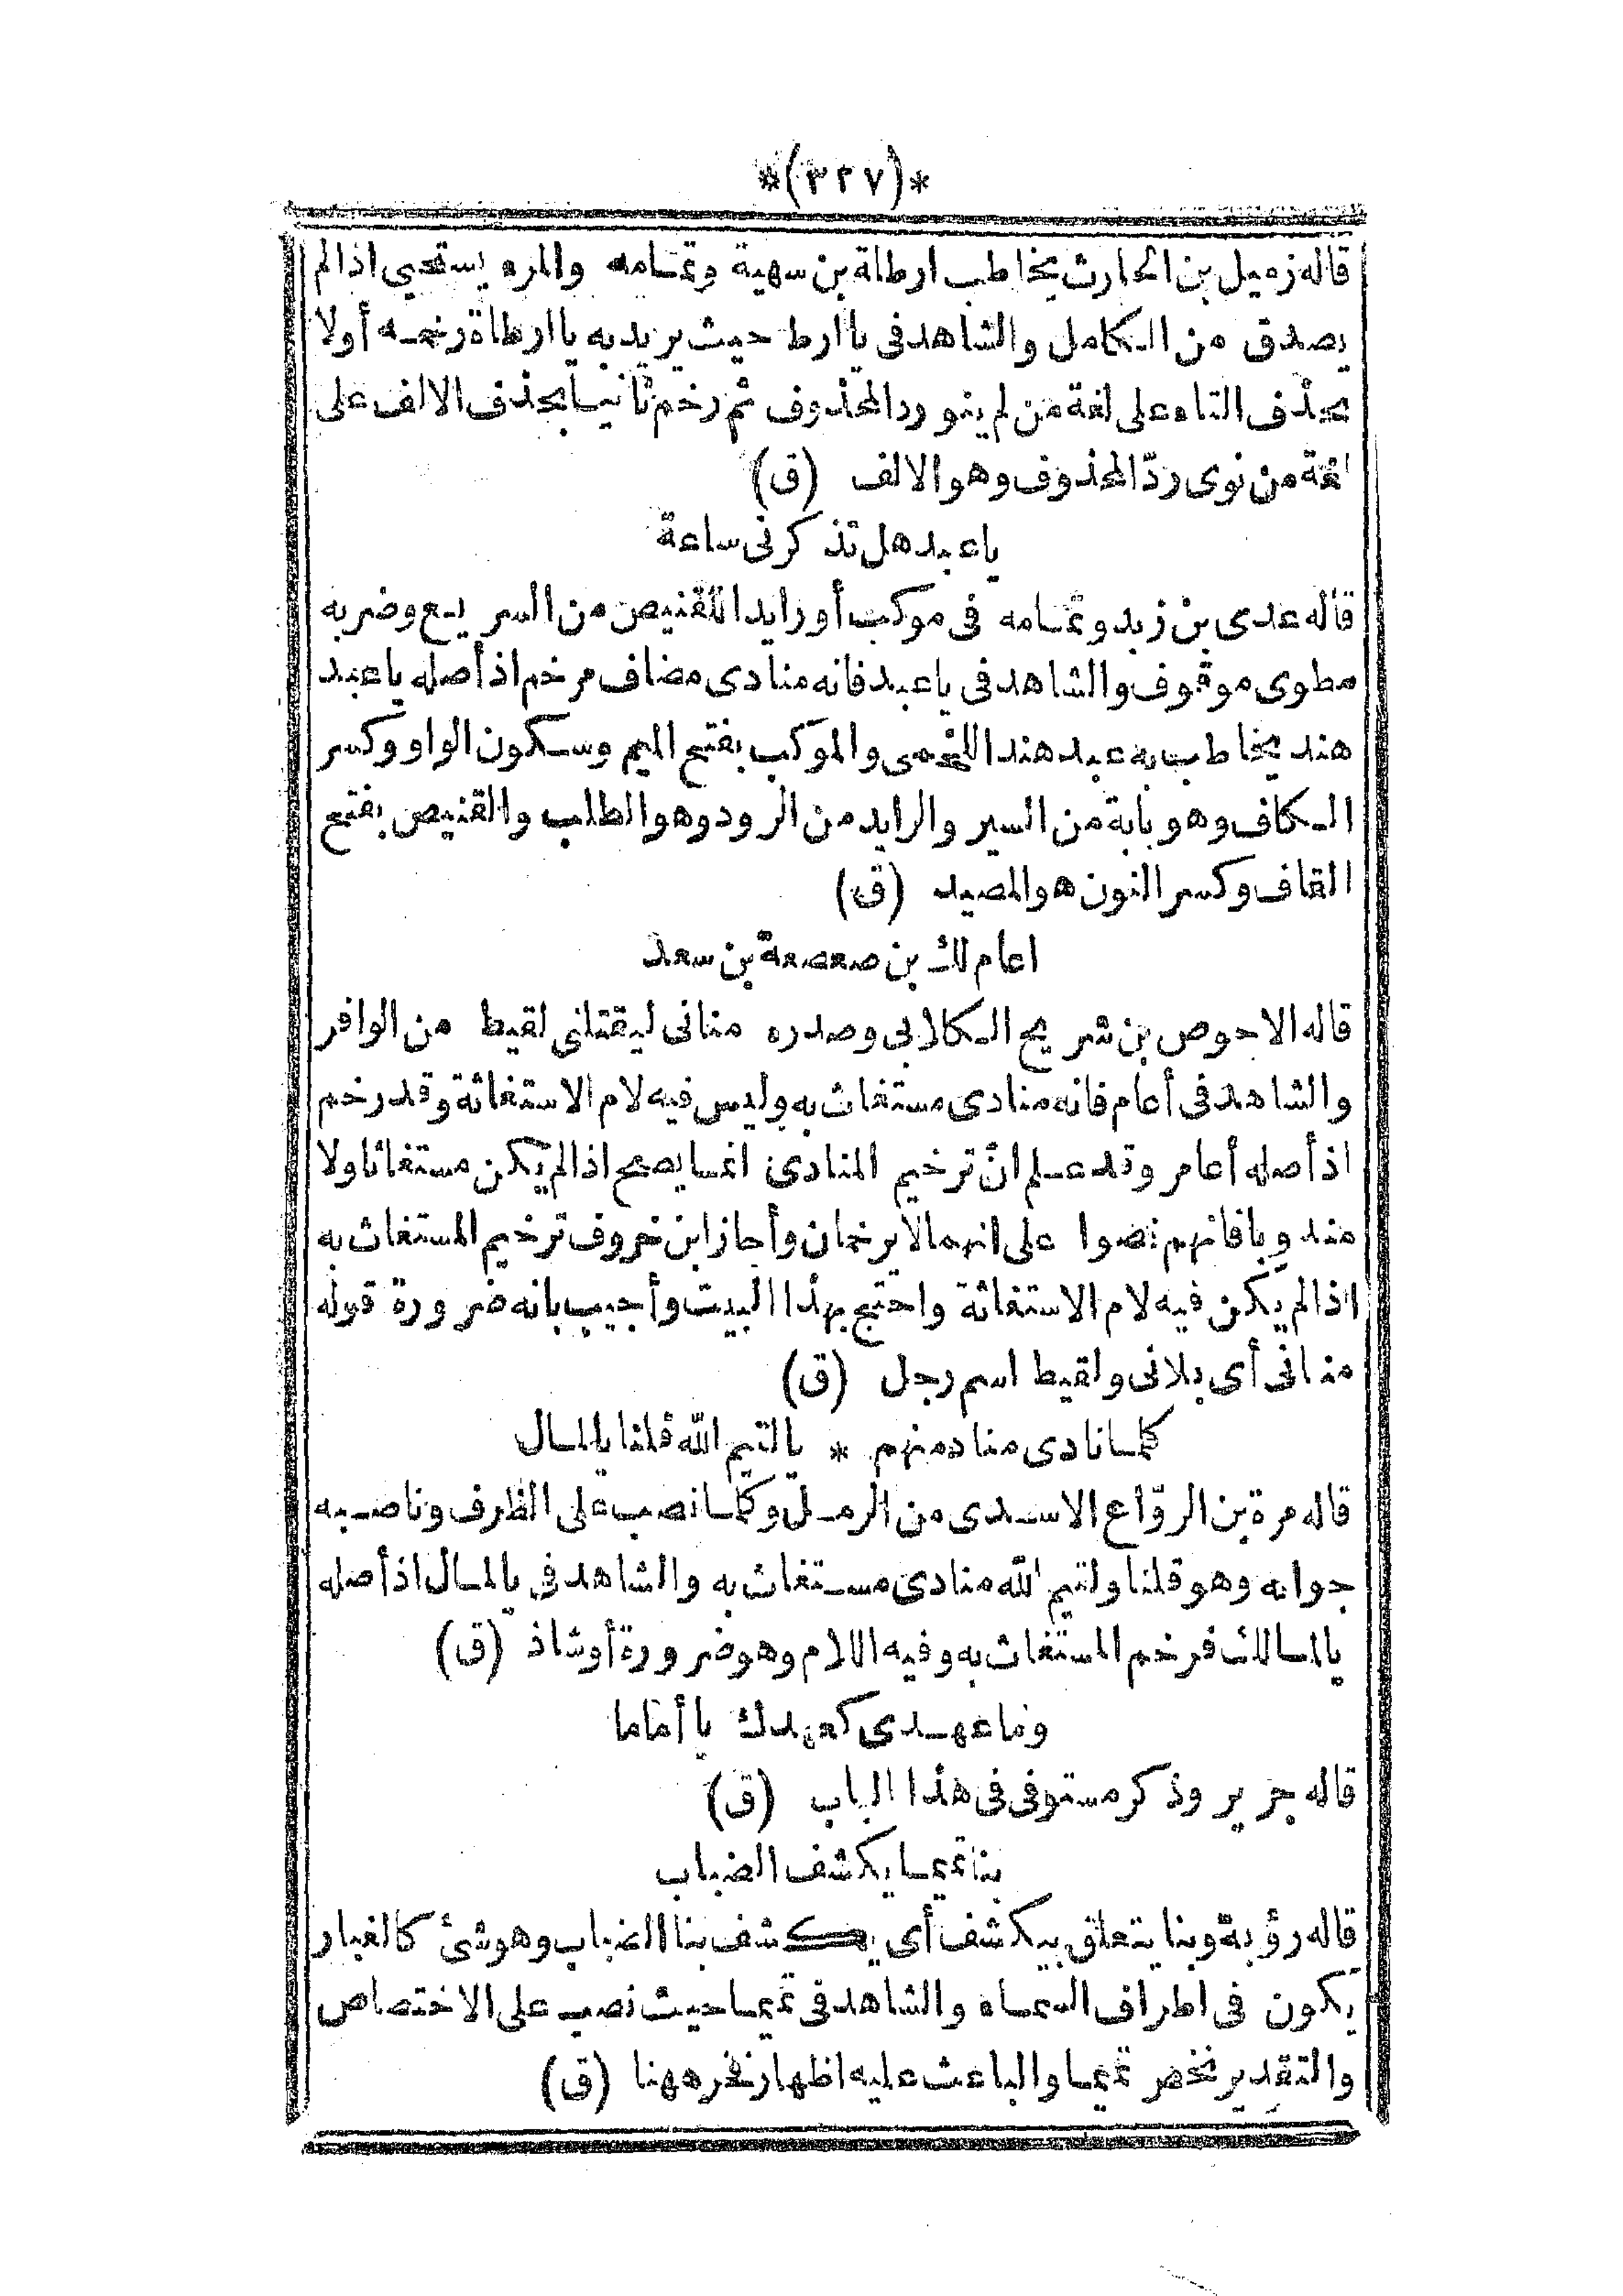 *(٣٢٧)*
قاله زميل بن الحارث يخاطب ارطاة بن سهية وتمامه والمرء يستحيي اذا لم
يصدق من الكامل والشاهد فى يا ارط حيث يريد به يا ارطاة رخمه أولا
بحذف التاء على لغة من لم ينو رد المحذوف ثم رخم ثانيا بحذف الالف على
لغة من نوى ردّ المحذوف وهو الالف (ق)
يا عبد هل تذكرنى ساعة
قاله عدى بن زيد وتمامه فى موكب أو رايد اللقنيص من السريع وضربه
مطوى موقوف والشاهد فى يا عبد فانه منادى مضاف مرخم اذ أصله يا عبد
هند يخاطب به عبد هند اللخمى والموكب بفتح الميم وسكون الواو وكسر
الكاف وهو بابة من السير والرايد من الرود وهو الطلب والقنيص بفتح
القاف وكسر النون هو المصيد (ق)
اعام لك بن صعصعة بن سعد
قاله الاحوص بن شريح الكلابى وصدره منانى ليقتلنى لقيط من الوافر
والشاهد فى أعام فانه منادى مستغاث به وليس فيه لام الاستغاثة وقد رخم
اذ أصله أعامر وقد علم انّ ترخيم المنادى انما يصح اذا لم يكن مستغاثا ولا
مندوبا فانهم نصوا على انهما لا يرخمان وأجاز ابن خروف ترخيم المستغاث به
اذا لم يكن فيه لام الاستغاثة واحتج بهذا البيت وأجيب بانه ضرورة قوله
منانى أى بلانى ولقيط اسم رجل (ق)
كلما نادى مناد منهم * يا لتيم الله قلنا يا لمال
قاله مرة بن الروّاع الاسدى من الرمل وكلما نصب على الظرف وناصبه
جوابه وهو قلنا ولتيم الله منادى مستغاث به والشاهد فى يا لمال اذ أصله
يا لمالك فرخم المستغاث به وفيه اللام وهو ضرورة أو شاذ (ق)
وما عهدى كعهدك يا أماما
قاله جرير وذكر مستوفى فى هذا الباب (ق)
بنا تميما يكشف الضباب
قاله رؤبة وبنا يتعلق بيكشف أى يكشف بنا الضباب وهو شئ كالغبار
يكون فى اطراف السماء والشاهد فى تميما حيث نصب على الاختصاص
والتقدير نخص تميما والباعث عليه اظهار نفخره هنا (ق)